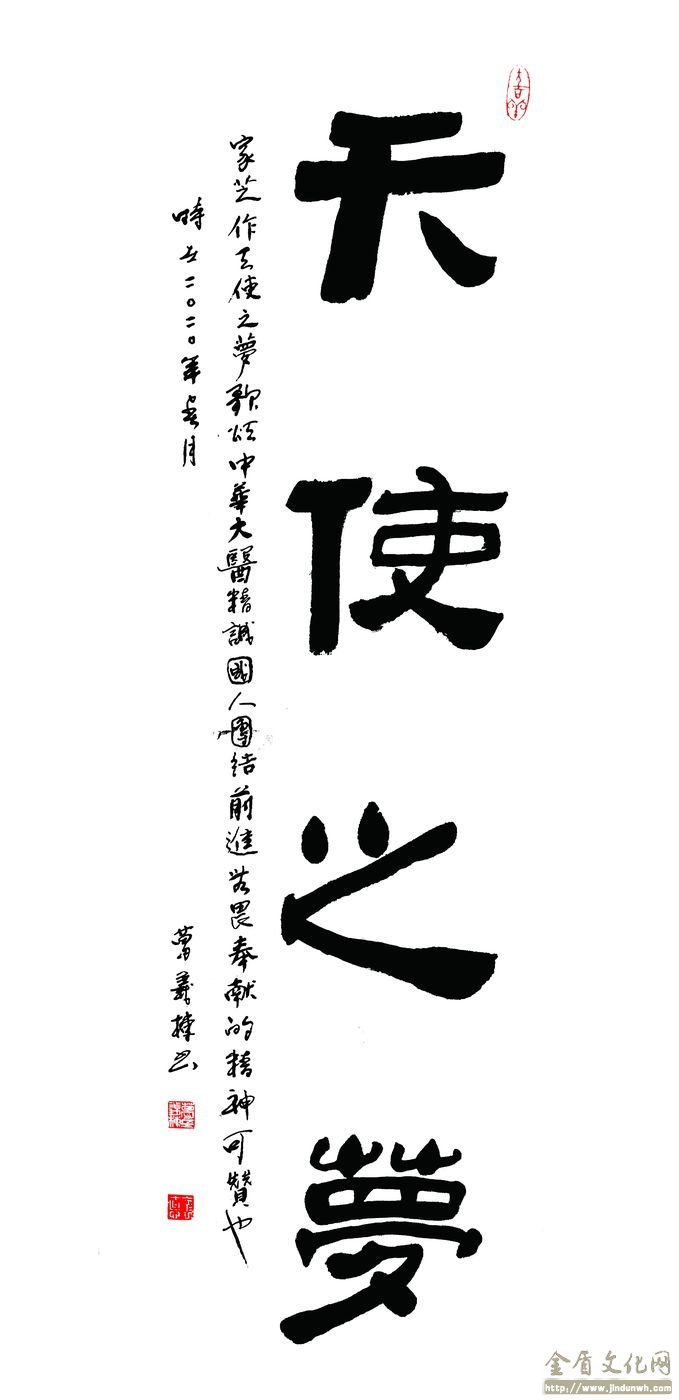 天使之夢
家芝作天使之夢歌頌中華大醫精誠國人團結前進無畏奉獻的精神可贊也
時在二〇二〇年春月
書
金盾文化网
http://www.jindunwh.com